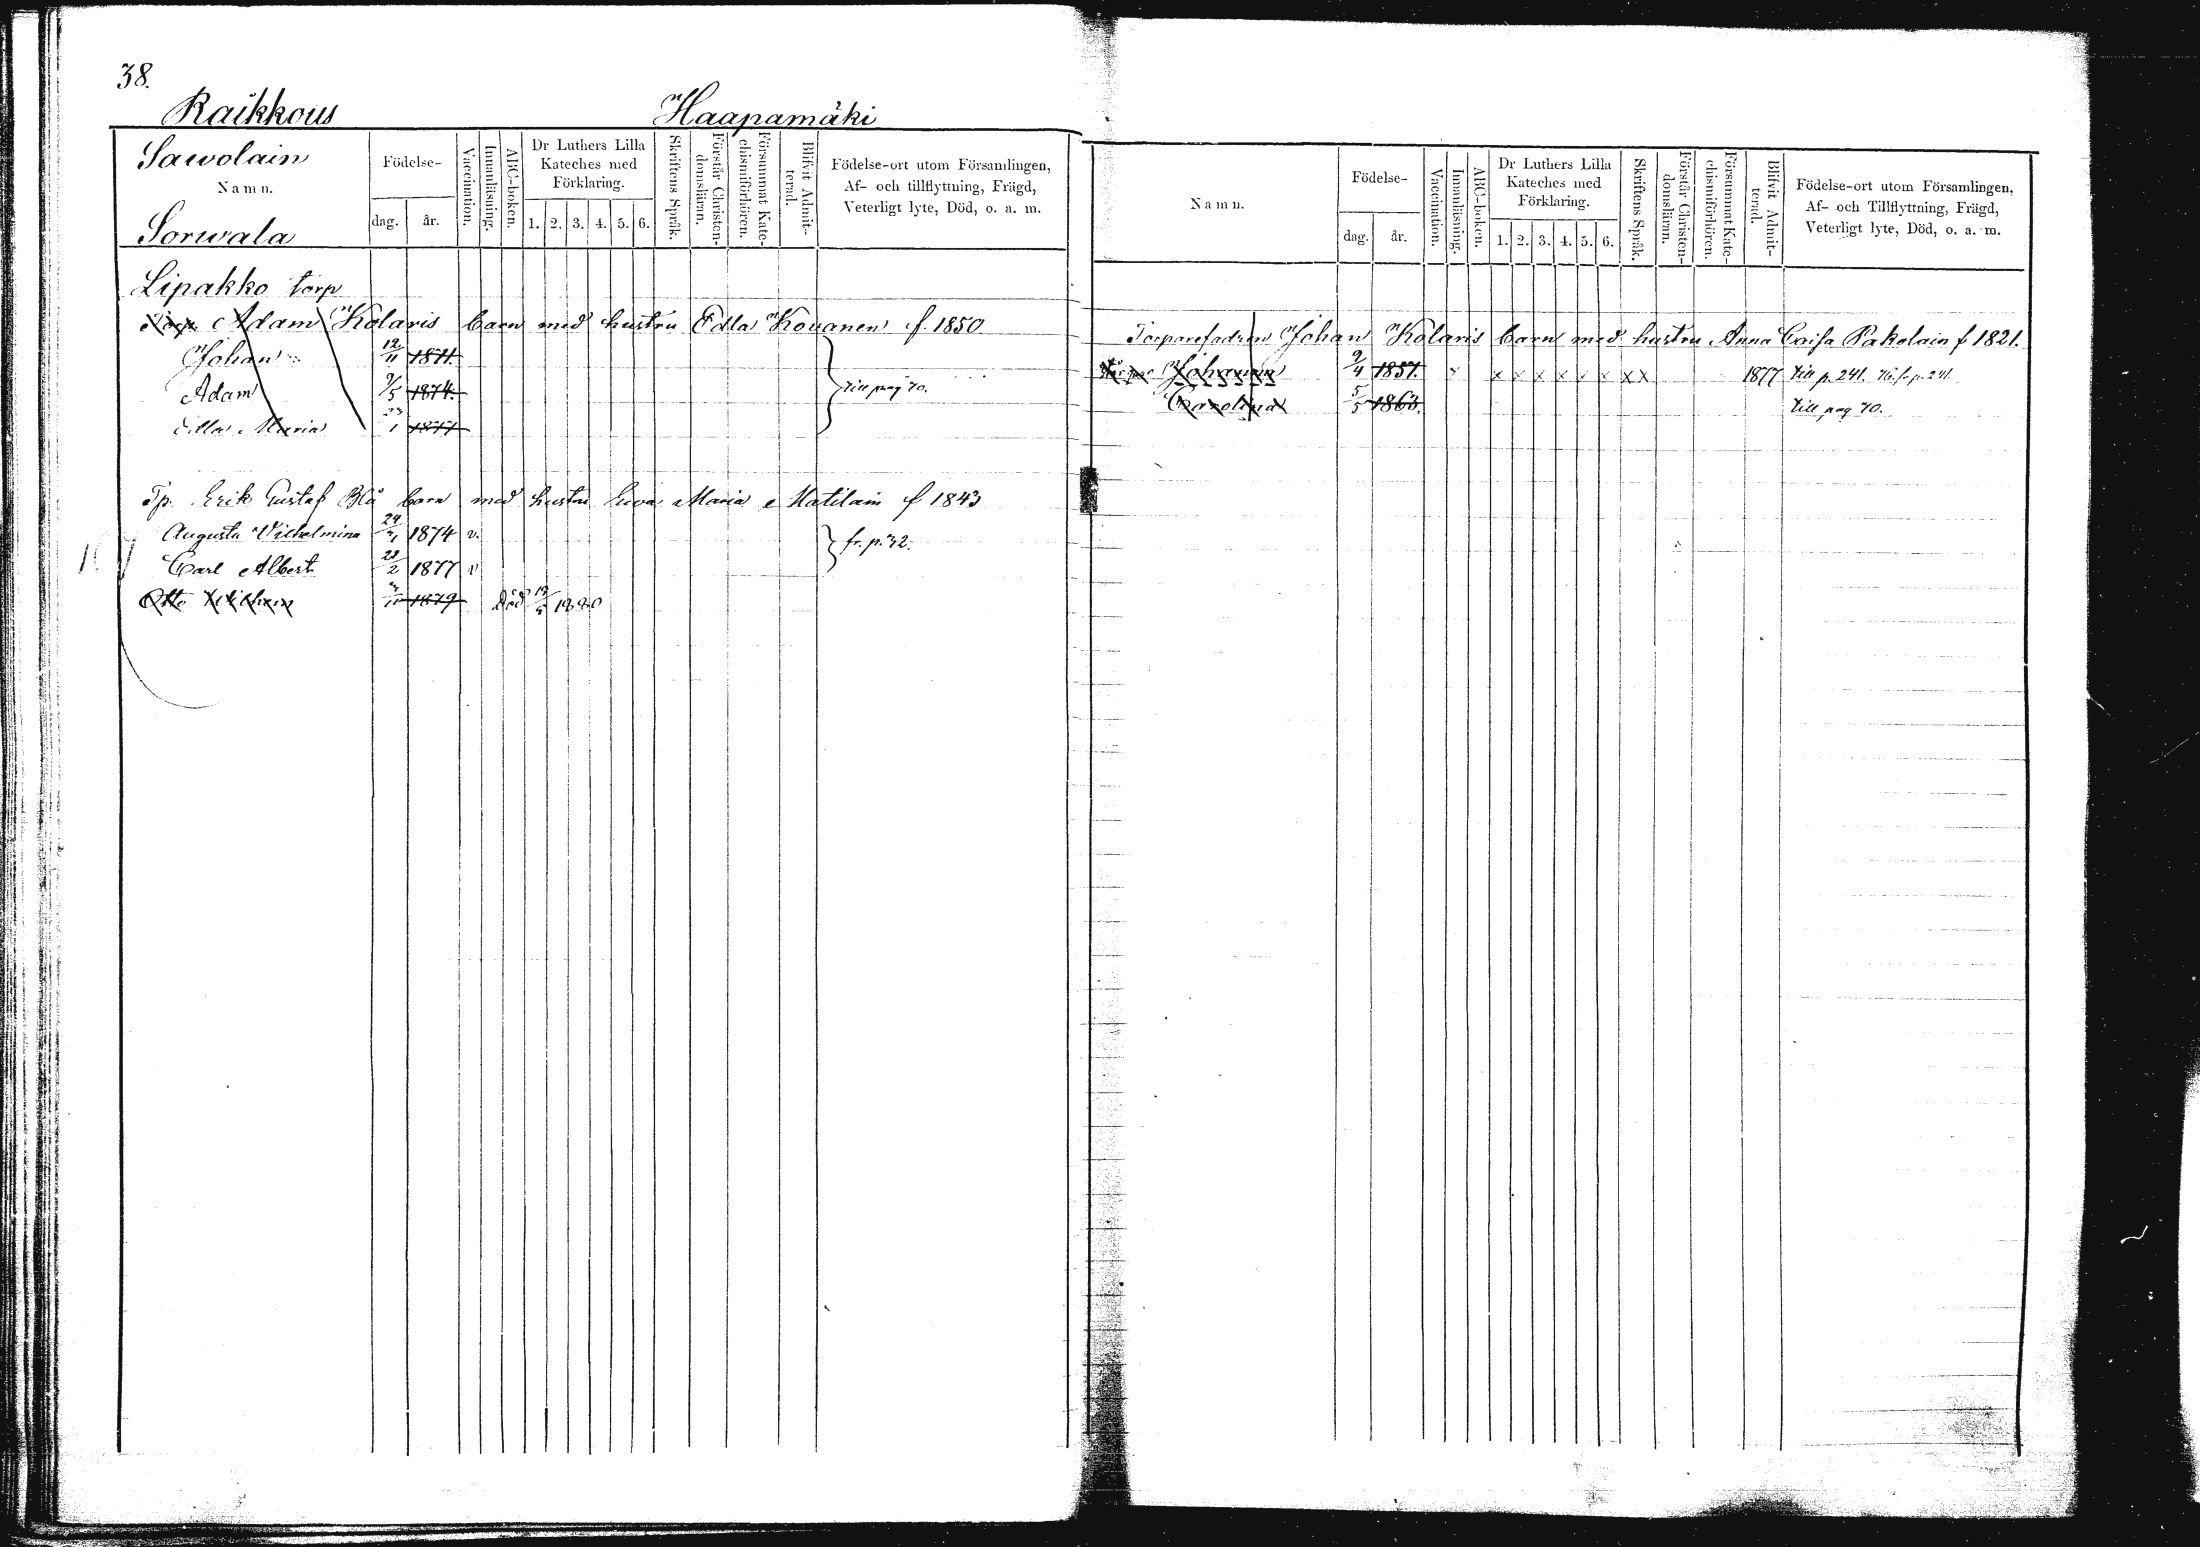 38.
Raikkous Haapamäki
Sawolain
Namn.
Sorwala
Födelse-
dag. år.
Vaccination.
Innanläsning.
ABC-boken.
Dr Luthers Lilla
Kateches med
Förklaring.
1. 2. 3. 4. 5. 6.
Skriftens Språk.
Förstår Christen-
domsläran.
Försummat Kate-
chismiförhören.
Blifvit Admit-
terad.
Födelse-ort utom Församlingen,
Af- och tillflyttning, Frägd,
Veterligt lyte, Död, o. a. m.
Lipakko torp
Torp. Adam Kolaris barn med hustru Edla Kouanen f. 1850
Johan 12/11 1871.
Adam 9/5 1874. till pag 70.
Edla Maria 23/1 1877
Tp. Erik Gustaf Blå barn med hustru Ewa Maria Matilain f 1843
Augusta Wilhelmina 1874 v.
fr. p. 32.
Carl Albert 28/2 1877 v
Otto Wilhelm 1879 död 1880
Namn.
Födelse-
dag. år.
Vaccination.
Innanläsning.
ABC-boken.
Dr Luthers Lilla
Kateches med
Förklaring.
1. 2. 3. 4. 5. 6.
Skriftens Språk.
Förstår Christen-
domsläran.
Försummat Kate-
chismiförhören.
Blifvit Admit-
terad.
Födelse-ort utom Församlingen,
Af- och Tillflyttning, Frägd,
Veterligt lyte, Död, o. a. m.
Torparefadren Johan Kolaris barn med hustru Anna Caisa Pakolain f 1821.
Johanna 9/4 1857. x x x x x x x x 1877 till p. 241.
Carolina 5/5 1863. till pag 70.